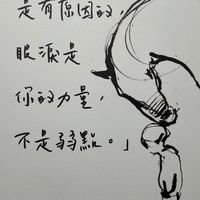 是有原因的，
眼淚是
你的力量，
不是弱點。」